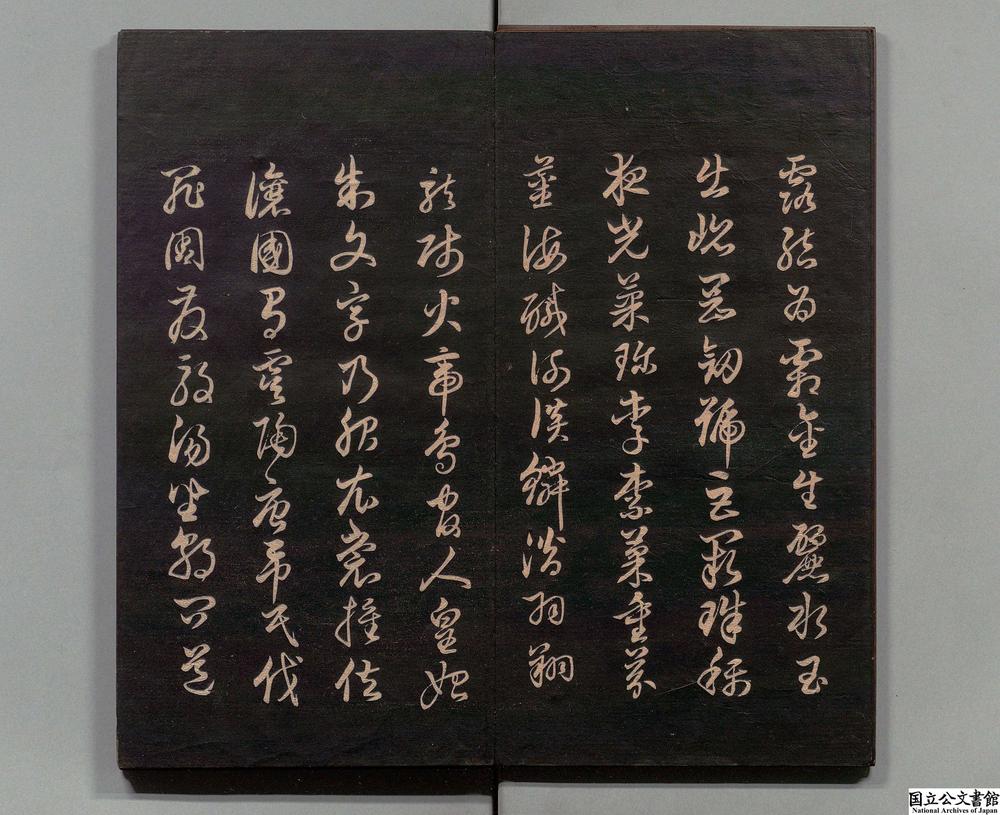 露結為霜金生麗水玉
出崐崗劍號巨闕珠稱
夜光菓珍李柰菜重芥
薑海醎河淡鱗潛羽翔
龍師火帝鳥官人皇始
制文字乃服衣裳推位
讓國有虞陶唐弔民伐
罪周發殷湯坐朝問道
国立公文書館
National Archives of Japan